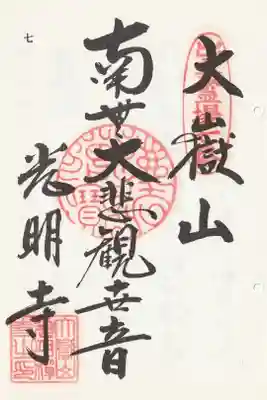 七
大嶽山
南無大悲觀世音
光明寺